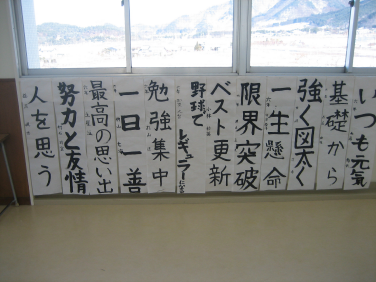 いつも元気
基礎から
強く図太く
一生懸命
限界突破
ベスト更新
野球でレギュラーになる
勉強集中
一日一善
最高の思い出
努力と友情
人を思う